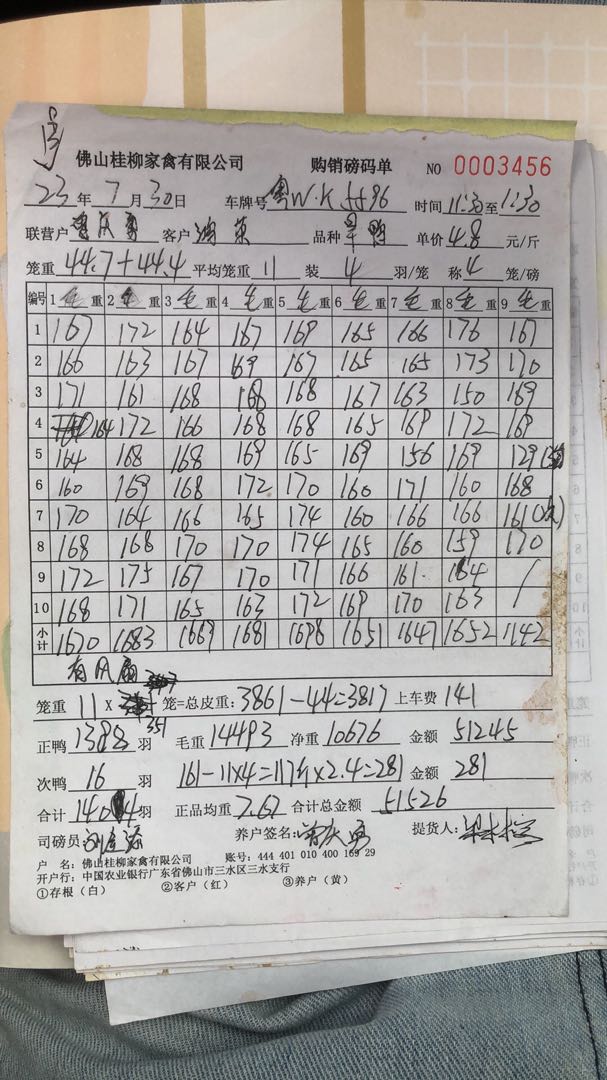 佛山桂柳家禽有限公司 购销磅码单 NO 0003456
23年7月30日 车牌号 粤W·K5596 时间11:30至1:30
联营户 曾庆勇 客户 品种 旱鸭 单价4.8元/斤
笼重 44.7+44.4 平均笼重 11 装 4 羽/笼 称 4 笼/磅
编号 1毛重 2毛重 3毛重 4毛重 5毛重 6毛重 7毛重 8毛重 9毛重
1 167 172 164 167 169 165 166 176 167
2 166 163 167 169 167 165 165 173 170
3 171 161 168 168 168 167 163 150 169
4 164 172 166 168 168 165 169 172 169
5 164 168 168 169 165 169 156 169 129
6 160 169 168 172 170 160 171 160 168
7 170 164 166 165 174 160 166 166 161(次)
8 168 168 170 170 174 165 160 159 170
9 172 175 167 170 171 166 161 164 /
10 168 171 165 163 172 169 170 163 /
小计 1670 1683 1669 1681 1698 1651 1647 1652 1142
有风扇
笼重 11 X 351 笼=总皮重:3861-44=3817 上车费 141
正鸭 1388 羽 毛重 14493 净重 10676 金额 51245
次鸭 16 羽 161-11×4=117斤×2.4=281 金额 281
合计 1404 羽 正品均重 7.67 合计总金额 51526
司磅员: 养户签名:曾庆勇 提货人:
户 名:佛山桂柳家禽有限公司 账号:444 401 010 400 169 29
开户行:中国农业银行广东省佛山市三水区三水支行
①存根(白) ②客户(红) ③养户(黄)